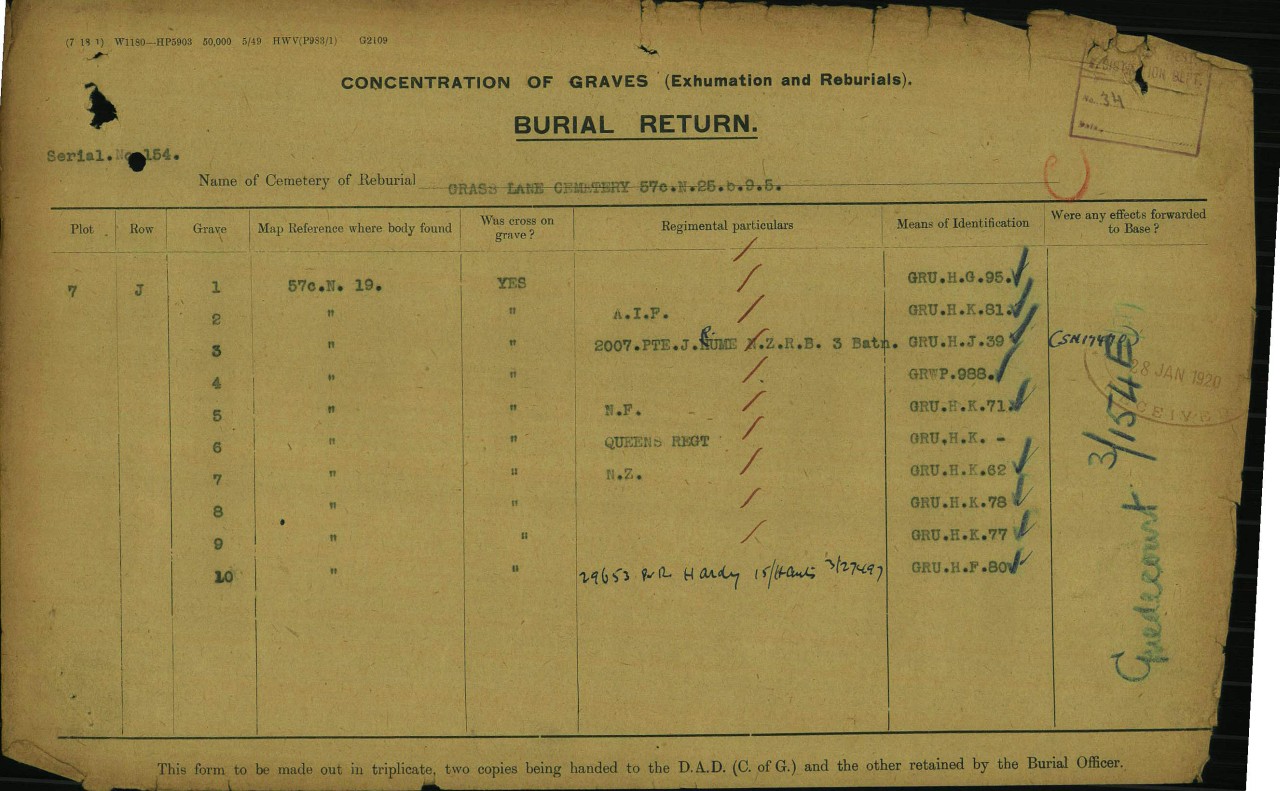 (7 18 1) W1180—HP5903 50,000 5/49 HWV(P983/1) G2109
CONCENTRATION OF GRAVES (Exhumation and Reburials).
BURIAL RETURN.
No. 34
Date
Serial.No 154.
Name of Cemetery of Reburial GRASS LANE CEMETERY 57c.N.25.b.9.5.
Plot Row Grave Map Reference where body found Was cross on grave? Regimental particulars Means of Identification Were any effects forwarded to Base?
7 J 1 57c.N. 19. YES GRU.H.G.95.
2 " " A.I.F. GRU.H.K.81.
3 " " 2007.PTE.J.HUME N.Z.R.B. 3 Batn. GRU.H.J.39
4 " " GRWP.988.
5 " " N.F. GRU.H.K.71
6 " " QUEENS REGT GRU.H.K. -
7 " " N.Z. GRU.H.K.62
8 " " GRU.H.K.78
9 " " GRU.H.K.77
10 " " 29653 Hardy 15/Hants 3/27497 GRU.H.F.80
28 JAN 1920
Guedecourt 3/154E
This form to be made out in triplicate, two copies being handed to the D.A.D. (C. of G.) and the other retained by the Burial Officer.